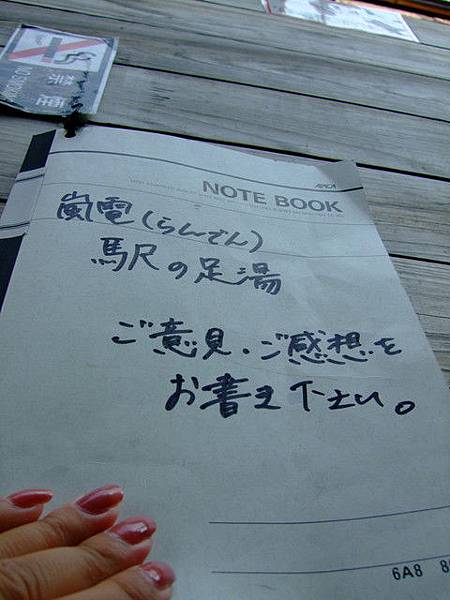 禁煙
NO SMOKING
APICA
NOTE BOOK
嵐電(らんでん)
駅の足湯
ご意見・ご感想を
お書き下さい。
6A8